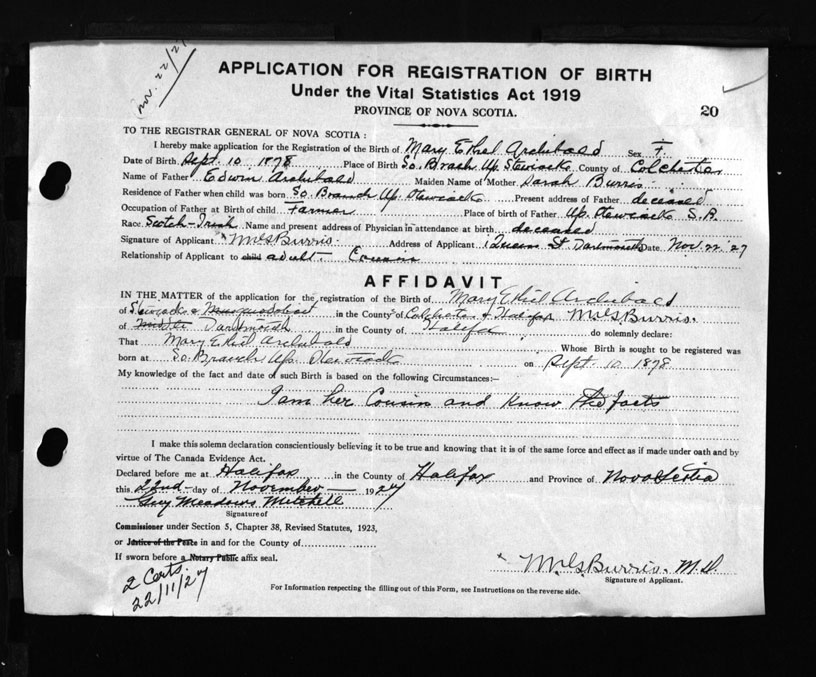 Nov. 22/27
APPLICATION FOR REGISTRATION OF BIRTH
Under the Vital Statistics Act 1919
PROVINCE OF NOVA SCOTIA.
20
TO THE REGISTRAR GENERAL OF NOVA SCOTIA :
I hereby make application for the Registration of the Birth of Mary Ethel Archibald Sex F.
Date of Birth Sept. 10 1878 Place of Birth So. Branch Up. Stewiacke County of Colchester
Name of Father Edwin Archibald Maiden Name of Mother Sarah Burris
Residence of Father when child was born So. Branch Up. Stewiacke Present address of Father deceased
Occupation of Father at Birth of child Farmer Place of birth of Father Up. Stewiacke
Race Scotch-Irish Name and present address of Physician in attendance at birth deceased
Signature of Applicant Burris. Address of Applicant Queen St Dartmouth Date Nov. 22 '27
Relationship of Applicant to child adult Cousin
AFFIDAVIT
IN THE MATTER of the application for the registration of the Birth of Mary Ethel Archibald
of Stewiacke & Musquodoboit in the County of Colchester & Halifax Burris.
of Dartmouth in the County of Halifax do solemnly declare:
That Mary Ethel Archibald Whose Birth is sought to be registered was
born at So. Branch Up. Stewiacke on Sept. 10 1878
My knowledge of the fact and date of such Birth is based on the following Circumstances:—
I am her Cousin and know the facts
I make this solemn declaration conscientiously believing it to be true and knowing that it is of the same force and effect as if made under oath and by
virtue of The Canada Evidence Act.
Declared before me at Halifax in the County of Halifax and Province of Nova Scotia
this 22nd day of November 1927
Guy Meadows Mitchell
Signature of
Commissioner under Section 5, Chapter 38, Revised Statutes, 1923,
or Justice of the Peace in and for the County of
If sworn before a Notary Public affix seal.
Burris. M.D.
Signature of Applicant.
2 Certs.
22/11/27
For Information respecting the filling out of this Form, see Instructions on the reverse side.